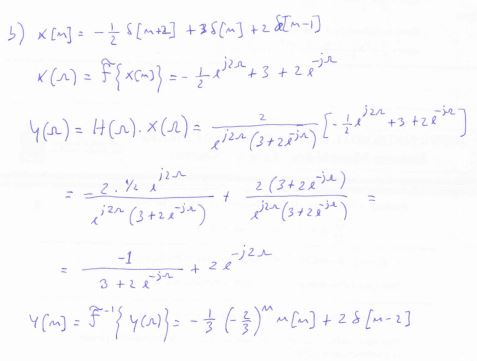 b) x[n] = -1/2 δ[n+2] + 3δ[n] + 2δ[n-1]
X(Ω) = F{x[n]} = -1/2 e^{j2Ω} + 3 + 2e^{-jΩ}
Y(Ω) = H(Ω). X(Ω) = 2 / (e^{j2Ω}(3+2e^{-jΩ})) [-1/2 e^{j2Ω} + 3 + 2e^{-jΩ}]
= -2. 1/2 e^{j2Ω} / (e^{j2Ω}(3+2e^{-jΩ})) + 2(3+2e^{-jΩ}) / (e^{j2Ω}(3+2e^{-jΩ})) =
= -1 / (3+2e^{-jΩ}) + 2e^{-j2Ω}
y[n] = F^{-1}{Y(Ω)} = -1/3 (-2/3)^n u[n] + 2δ[n-2]